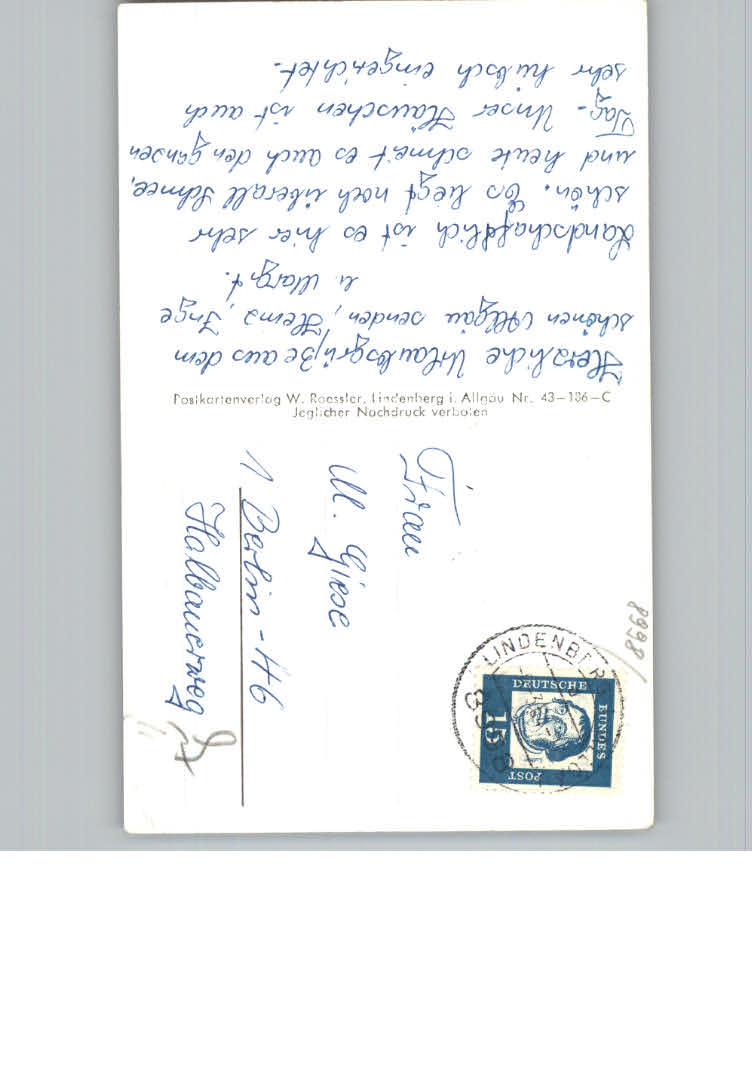 Herzliche Urlaubsgrüße aus dem
schönen Allgäu senden, Heinz, Inge
u. Margit.
Landschaftlich ist es hier sehr
schön. Es liegt noch überall Schnee,
und heute schneit es auch den ganzen
Tag. Unser Häuschen ist auch
sehr hübsch eingerichtet.
Postkartenverlag W. Roessler, Lindenberg i. Allgäu Nr. 43-186-C
Jeglicher Nachdruck verboten
Frau
M. Giese
1 Berlin-46
Halbauerweg
8998
LINDENBERG
8998
DEUTSCHE
BUNDES
POST
15